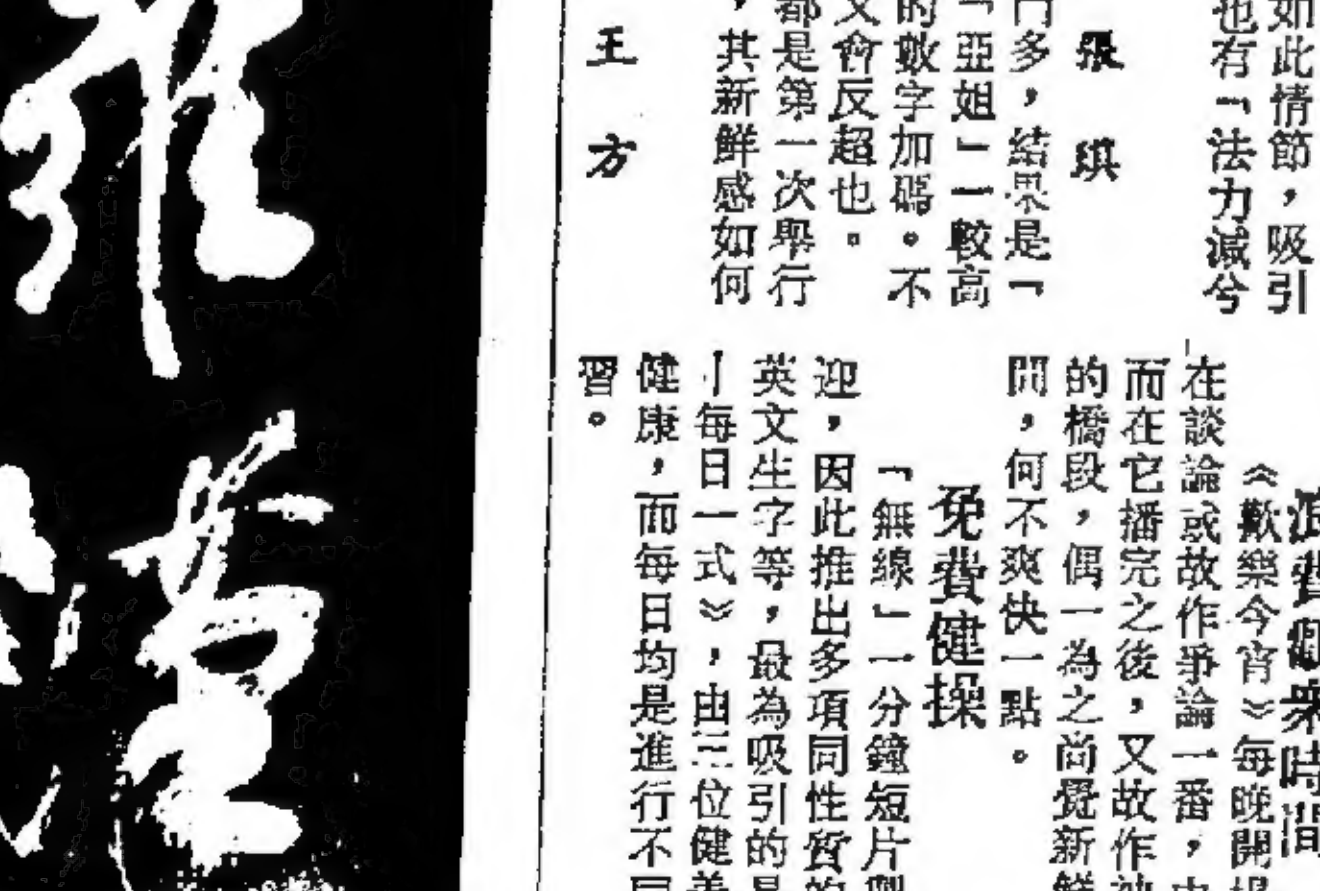 如此情節，吸引
也有「法力減兮
張琪
門多，結果是「
「亞姐」一較高
的數字加碼。不
又會反超也。
都是第一次舉行
，其新鮮感如何
王方
時間
《歡樂今宵》每晚開
在談論或故作爭論一番，
而在它播完之後，又故作
的橋段，偶一為之尚覺新鮮
間，何不爽快一點。
免費健操
「無線」一分鐘短片
迎，因此推出多項同性質的
英文生字等，最為吸引的是
每日一式》，由三位健美
健康，而每日均是進行不同
習。